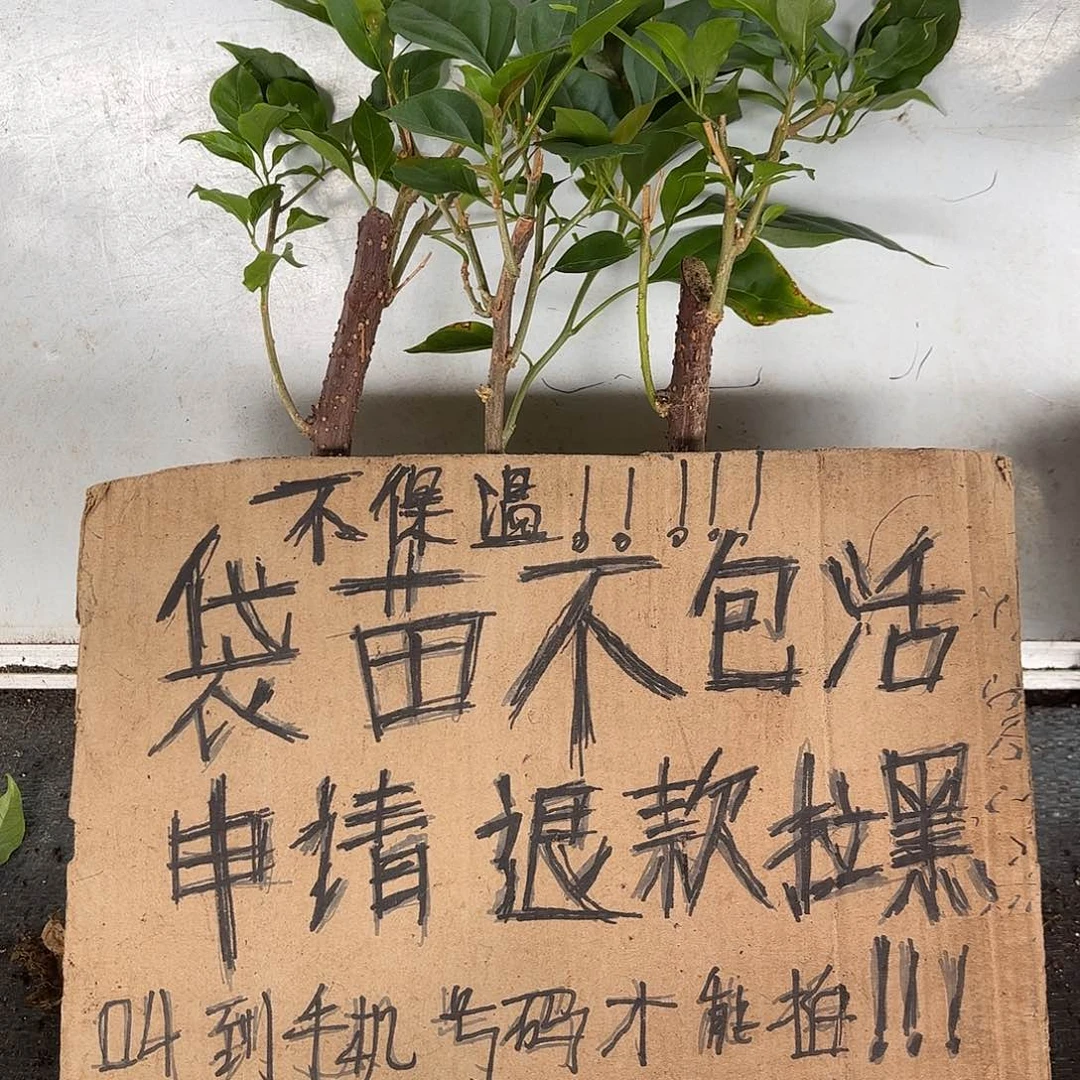 不保温!!!!!
袋苗不包活
申请退款拉黑
叫到手机号码才能拍!!!